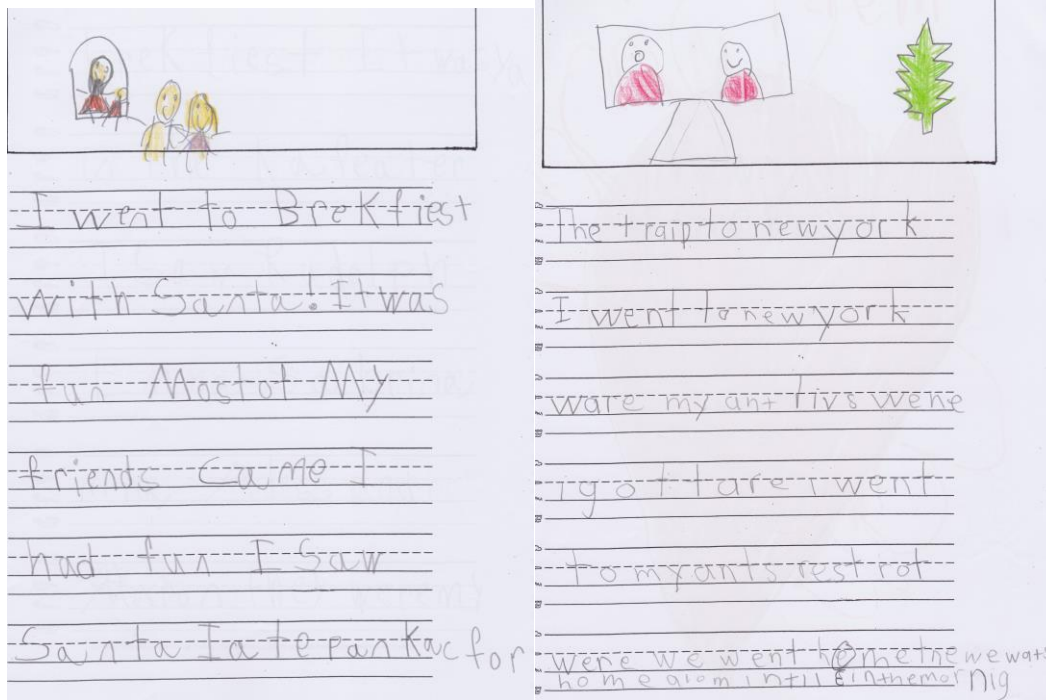 I went to Brekfiest
with Santa! It was
fun Most of My
friends Came I
had fun I Saw
Santa I ate pankac for
The traip to new york
I went to new york
ware my ant livs wene
i got tare i went
to my ants rest rot
were we went home the we wats
home alom intil in the mornig